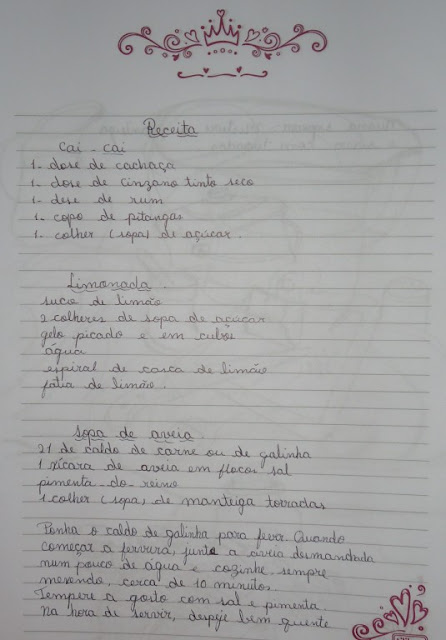 Receita
Cai - cai
1- dose de cachaça
1- dose de cinzano tinto seco
1- dose de rum
1- copo de pitangas
1- colher (sopa) de açúcar.
Limonada.
suco de limão
2 colheres de sopa de açúcar
gelo picado e em cubos
água
espiral de casca de limão
fatia de limão.
Sopa de aveia
2 l de caldo de carne ou de galinha
1 xícara de aveia em flocos sal
pimenta-do-reino
1 colher (sopa) de manteiga torradas
Ponha o caldo de galinha para fever. Quando
começar a ferverá, junto a aveia desmanchada
num pouco de água e cozinhe sempre
mexendo, cerca de 10 minutos.
Tempere a gosto com sal e pimenta.
Na hora de servir, despeje bem quente